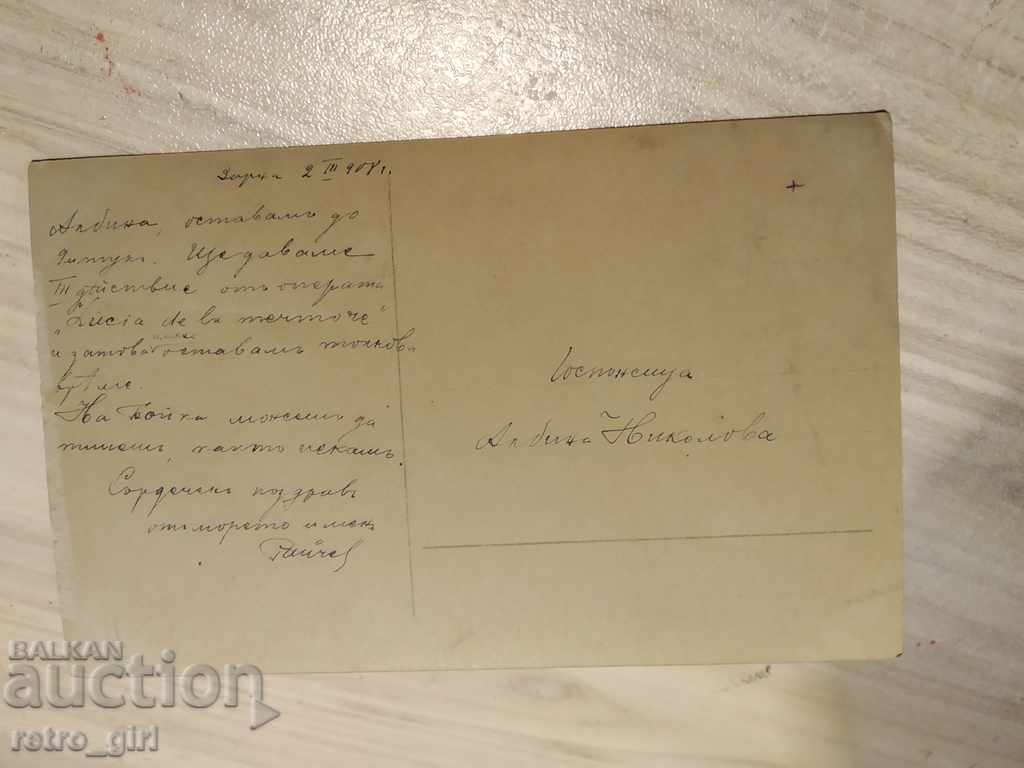 Варна 2 III 908 г.
Албина, оставамъ до
тукъ. Ще даваме
III действие отъ операта
"Lucia de la
и затова оставамъ толкова
време.
На Бойка можешъ да
пишешъ, както искашъ.
Сърдеченъ поздравъ
отъ морето и менъ
Райчев
Госпожица
Албина Николова
+
BALKAN
auction
retro_girl